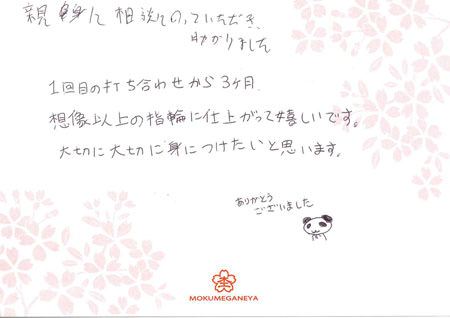 親身に 相談にのっていただき、
助かりました
1回目の打ち合わせから3ヶ月
想像以上の指輪に仕上がって嬉しいです。
大切に大切に身につけたいと思います。
ありがとう
ございました
杢
MOKUMEGANEYA